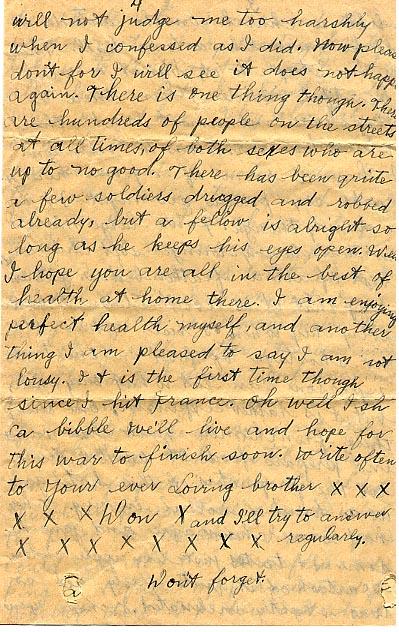 4
will not judge me too harshly
when I confessed as I did. Now please
don't for I will see it does not happen
again. There is one thing though. There
are hundreds of people on the streets
at all times, of both sexes who are
up to no good. There has been quite
a few soldiers drugged and robbed
already, but a fellow is alright so
long as he keeps his eyes open. Well
I hope you are all in the best of
health at home there. I am enjoying
perfect health myself, and another
thing I am pleased to say I am not
lousy. It is the first time though
since I hit France. Oh well I sh
ca bibble we'll live and hope for
this war to finish soon. Write often
to Your ever Loving brother X X X
X X X Won X and I'll try to answer
X X X X X X X X X regularly.
Won't forget.